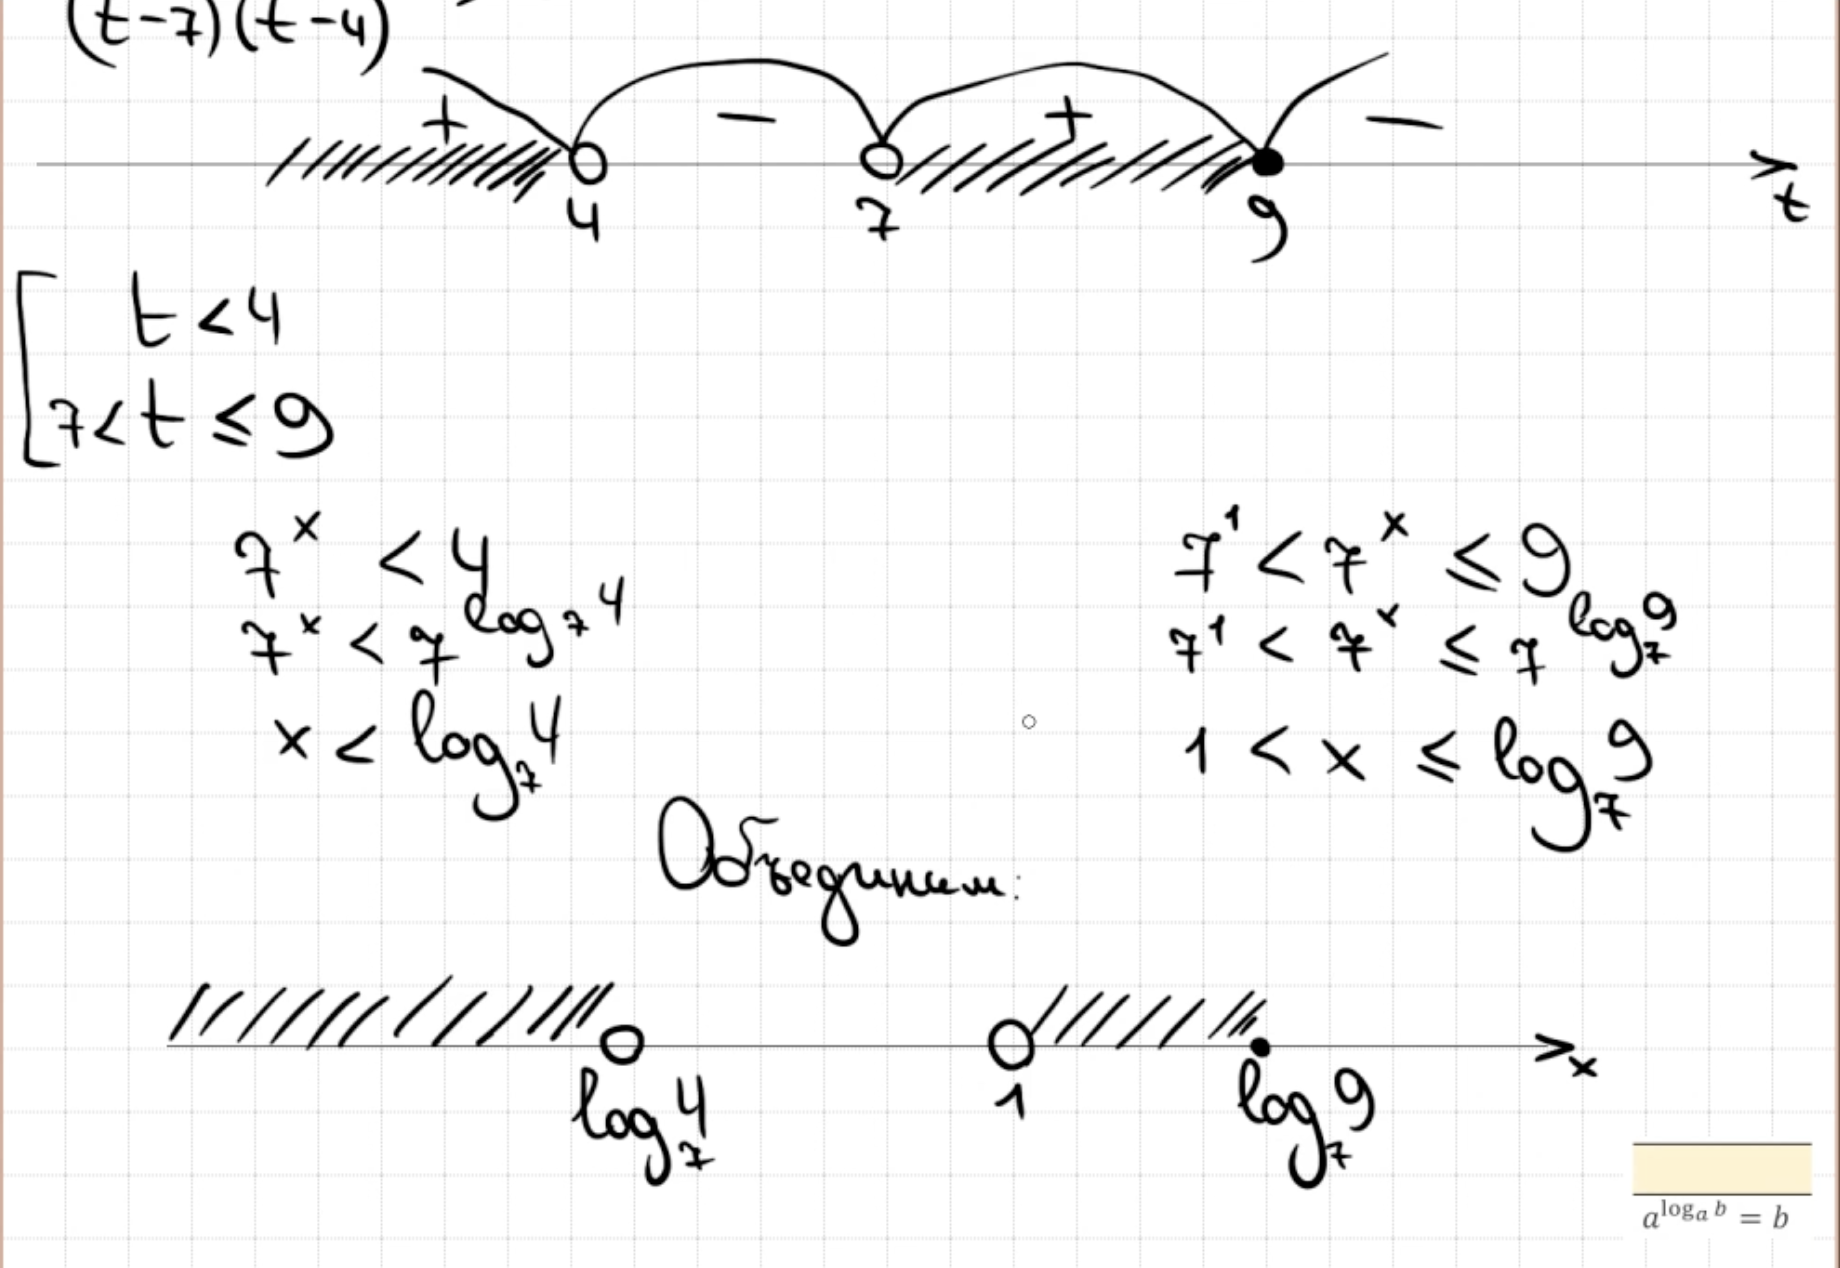 (t-7)(t-4)
+ − + −
4 7 9 t
t < 4
7 < t ≤ 9
7^x < 4
7^x < 7^{log_7 4}
x < log_7 4
7^1 < 7^x ≤ 9
7^1 < 7^x ≤ 7^{log_7 9}
1 < x ≤ log_7 9
Объединим:
x
log_7 4 1 log_7 9
a^{log_a b} = b